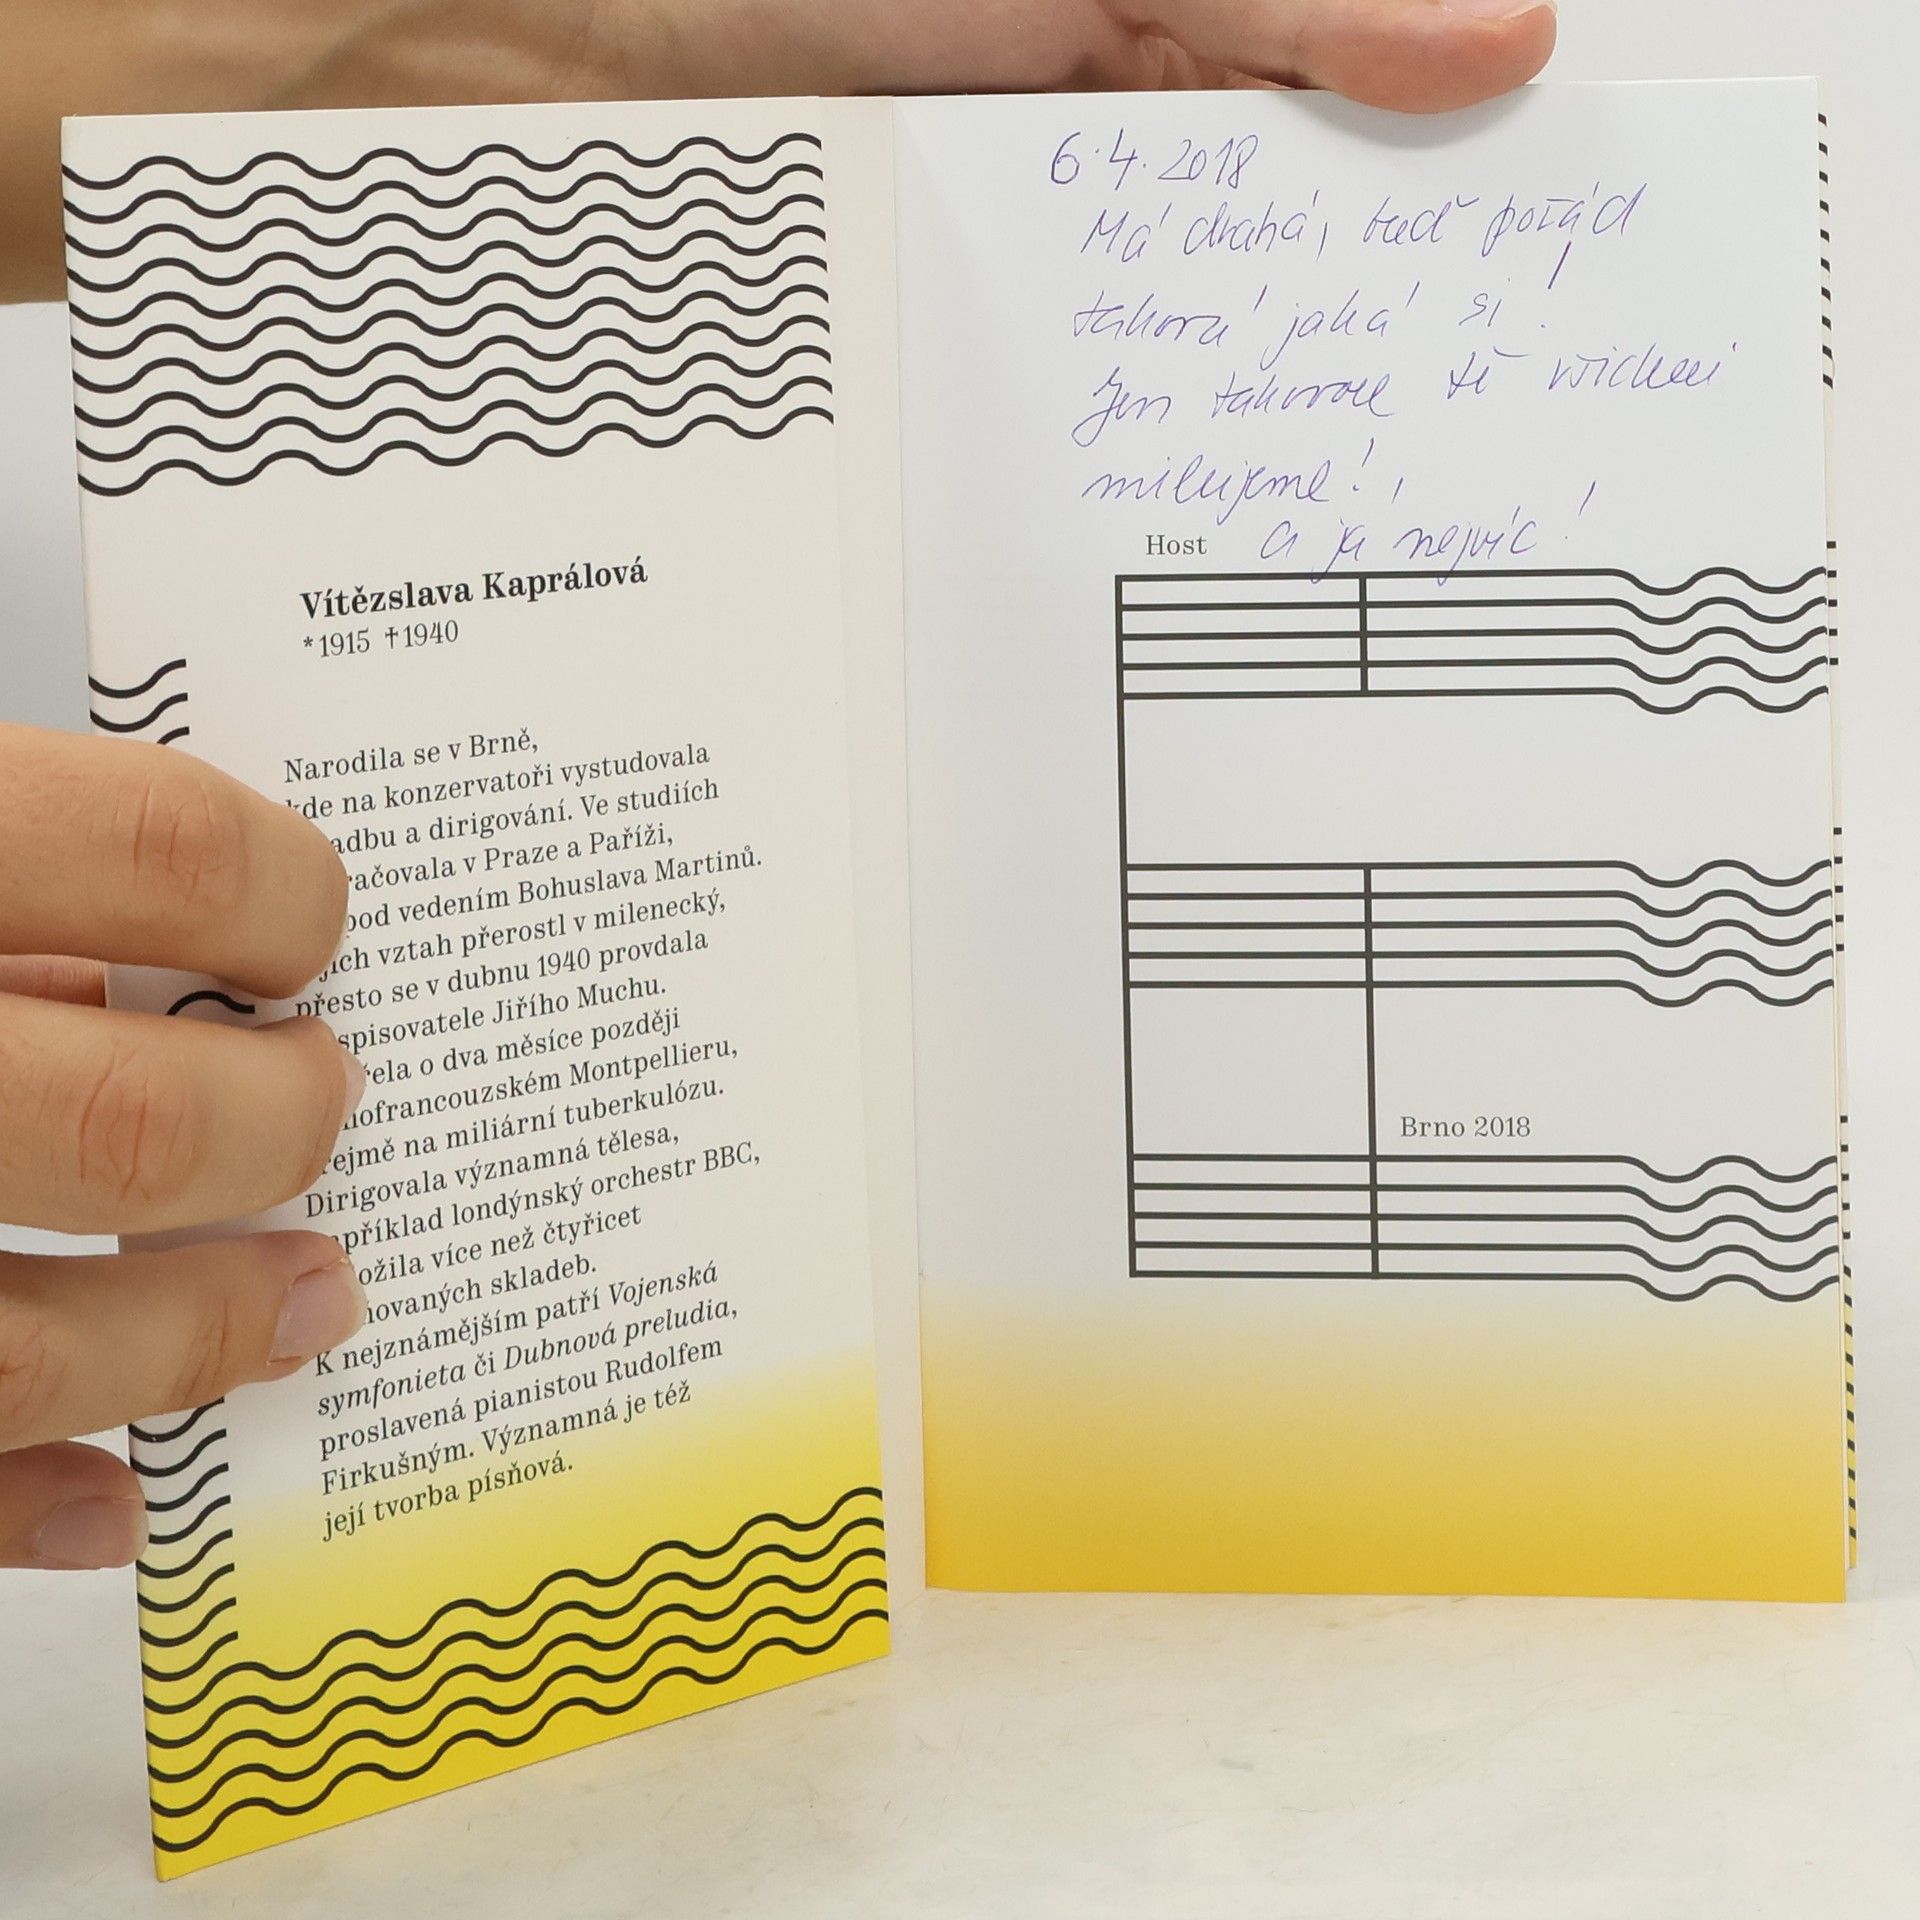 Vítězslava Kaprálová
*1915 †1940
Narodila se v Brně,
kde na konzervatoři vystudovala
adbu a dirigování. Ve studiích
račovala v Praze a Paříži,
pod vedením Bohuslava Martinů.
jich vztah přerostl v milenecký,
přesto se v dubnu 1940 provdala
spisovatele Jiřího Muchu.
řela o dva měsíce později
ofrancouzském Montpellieru,
ejmě na miliární tuberkulózu.
Dirigovala významná tělesa,
příklad londýnský orchestr BBC,
ožila více než čtyřicet
ňovaných skladeb.
K nejznámějším patří Vojenská
symfonieta či Dubnová preludia,
proslavená pianistou Rudolfem
Firkušným. Významná je též
její tvorba písňová.
6.4.2018
Má drahá, buď pořád
taková jaká si!
Jen takovou tě všichni
milujeme!
a já nejvíc!
Host
Brno 2018